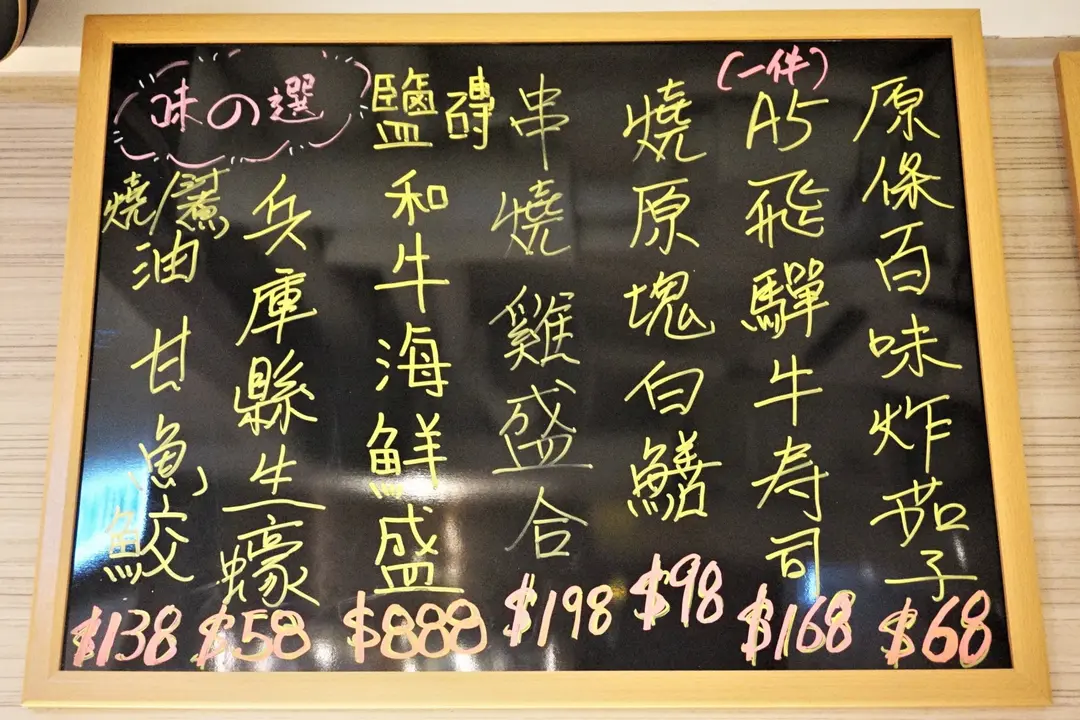 味の選
原條百味炸茄子
$68
(一件)
A5飛驒牛寿司
$168
燒原塊白鱔
$98
串燒雞盛合
$198
鹽磚和牛海鮮盛
$888
兵庫縣生蠔
$58
燒/煮油甘魚鮫
$138